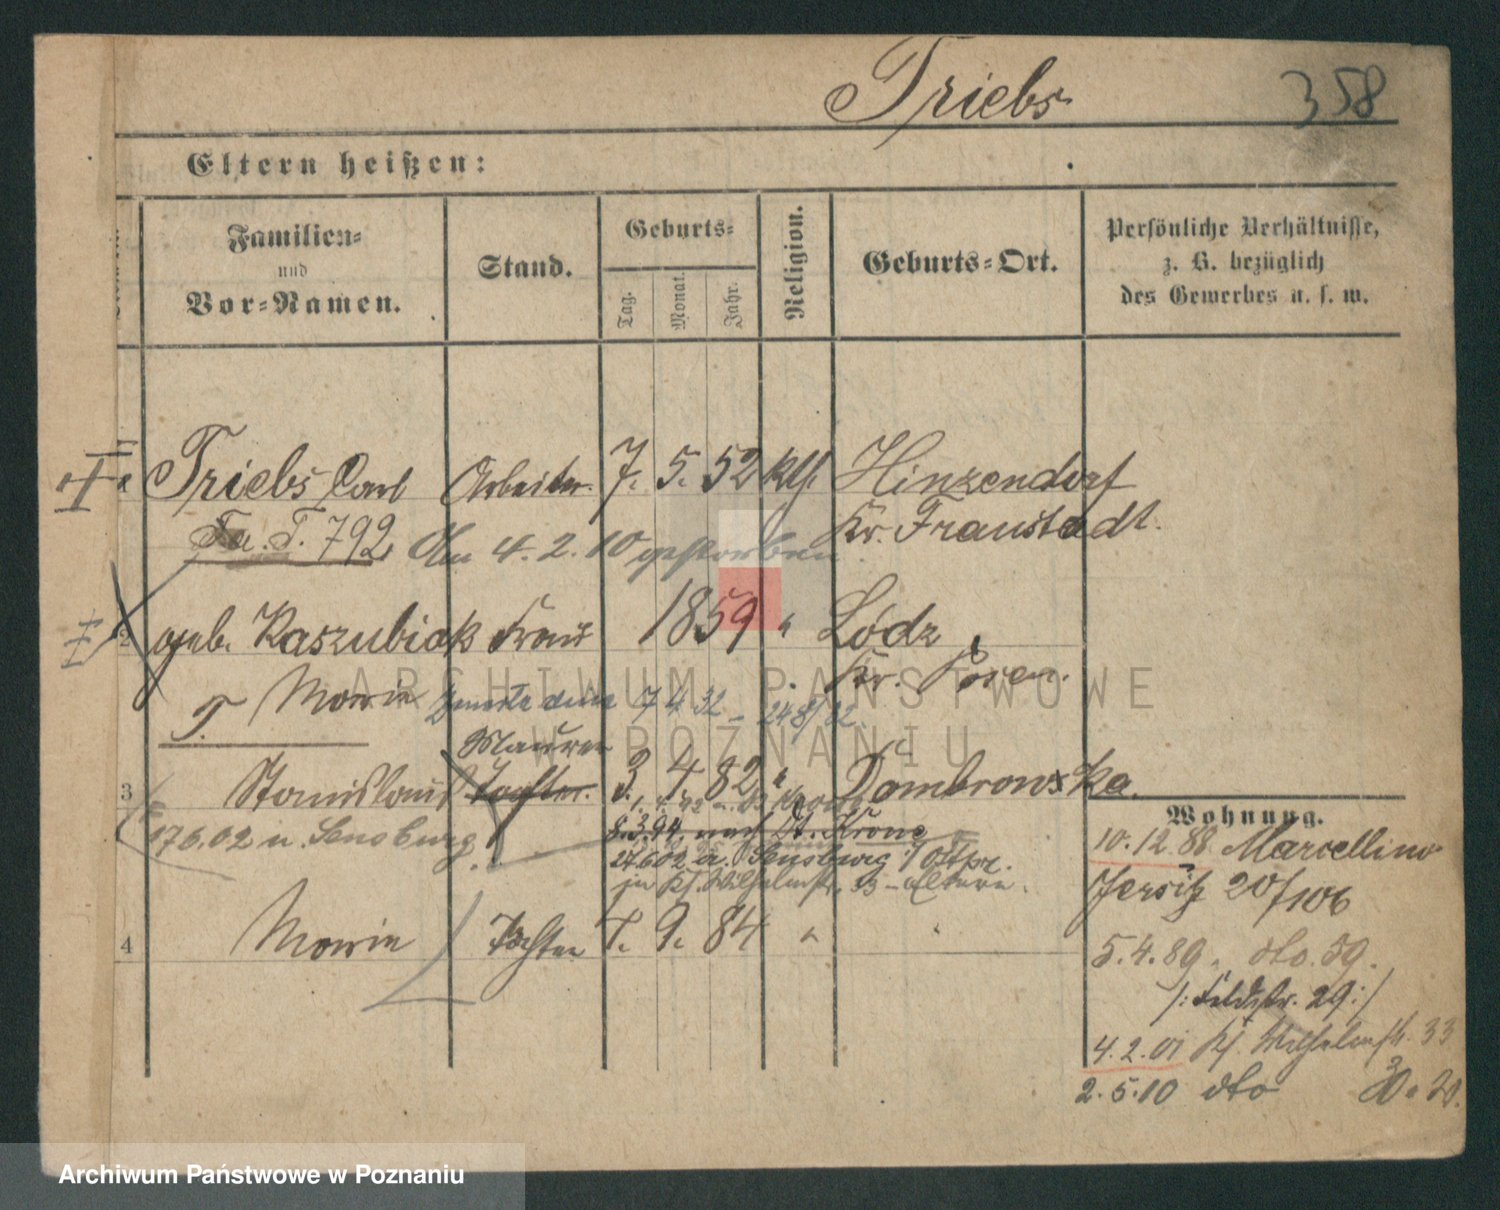 Triebs 358
Eltern heißen:
Familien-
und
Vor-Namen.
Stand.
Geburts-
Tag.
Monat.
Jahr.
Religion.
Geburts-Ort.
Persönliche Verhältnisse,
z. B. bezüglich
des Gewerbes u. s. w.
Triebs Carl Arbeiter. 7. 5. 52 kth. Hinzendorf
Kr. Fraustadt.
T. 792 Am 4. 2. 10 gestorben
2 geb. Kaszubiak Frau 1859 " Lodz
Kr. Posen.
T. Marie 7 4 32
Maurer
3 Stanislaus 3. 4. 82 " Dombrowska.
17 6.02 n. Sensburg
8.3.94. nach Dt. Krone
27.6.02 n. Sensburg / Ostpr.
33 Eltern.
4 Marie Tochter 7. 9. 84 "
Wohnung.
10.12.88 Marcellino
Jersitz 20/106
5.4.89. dto. 59.
/: Feldstr. 29:/
4.2.01 Kf. Wilhelmstr. 33
2.5.10 dto
ARCHIWUM PAŃSTWOWE
W POZNANIU
Archiwum Państwowe w Poznaniu